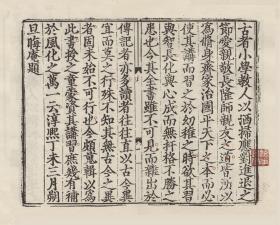 古者小學教人以洒掃應對進退之
節愛親敬長隆師親友之道皆所以
為脩身齊家治國平天下之本而必
使其講而習之於幼稚之時欲其習
與智長化與心成而無扞格不勝之
患也今其全書雖不可見而雜出於
傳記者亦多讀者往往直以古今異
宜而莫之行殊不知其無古今之異
者固未始不可行也今頗蒐輯以為
此書授之童蒙資其講習庶幾有補
於風化之萬一云淳熙丁未三月朔
旦晦菴題